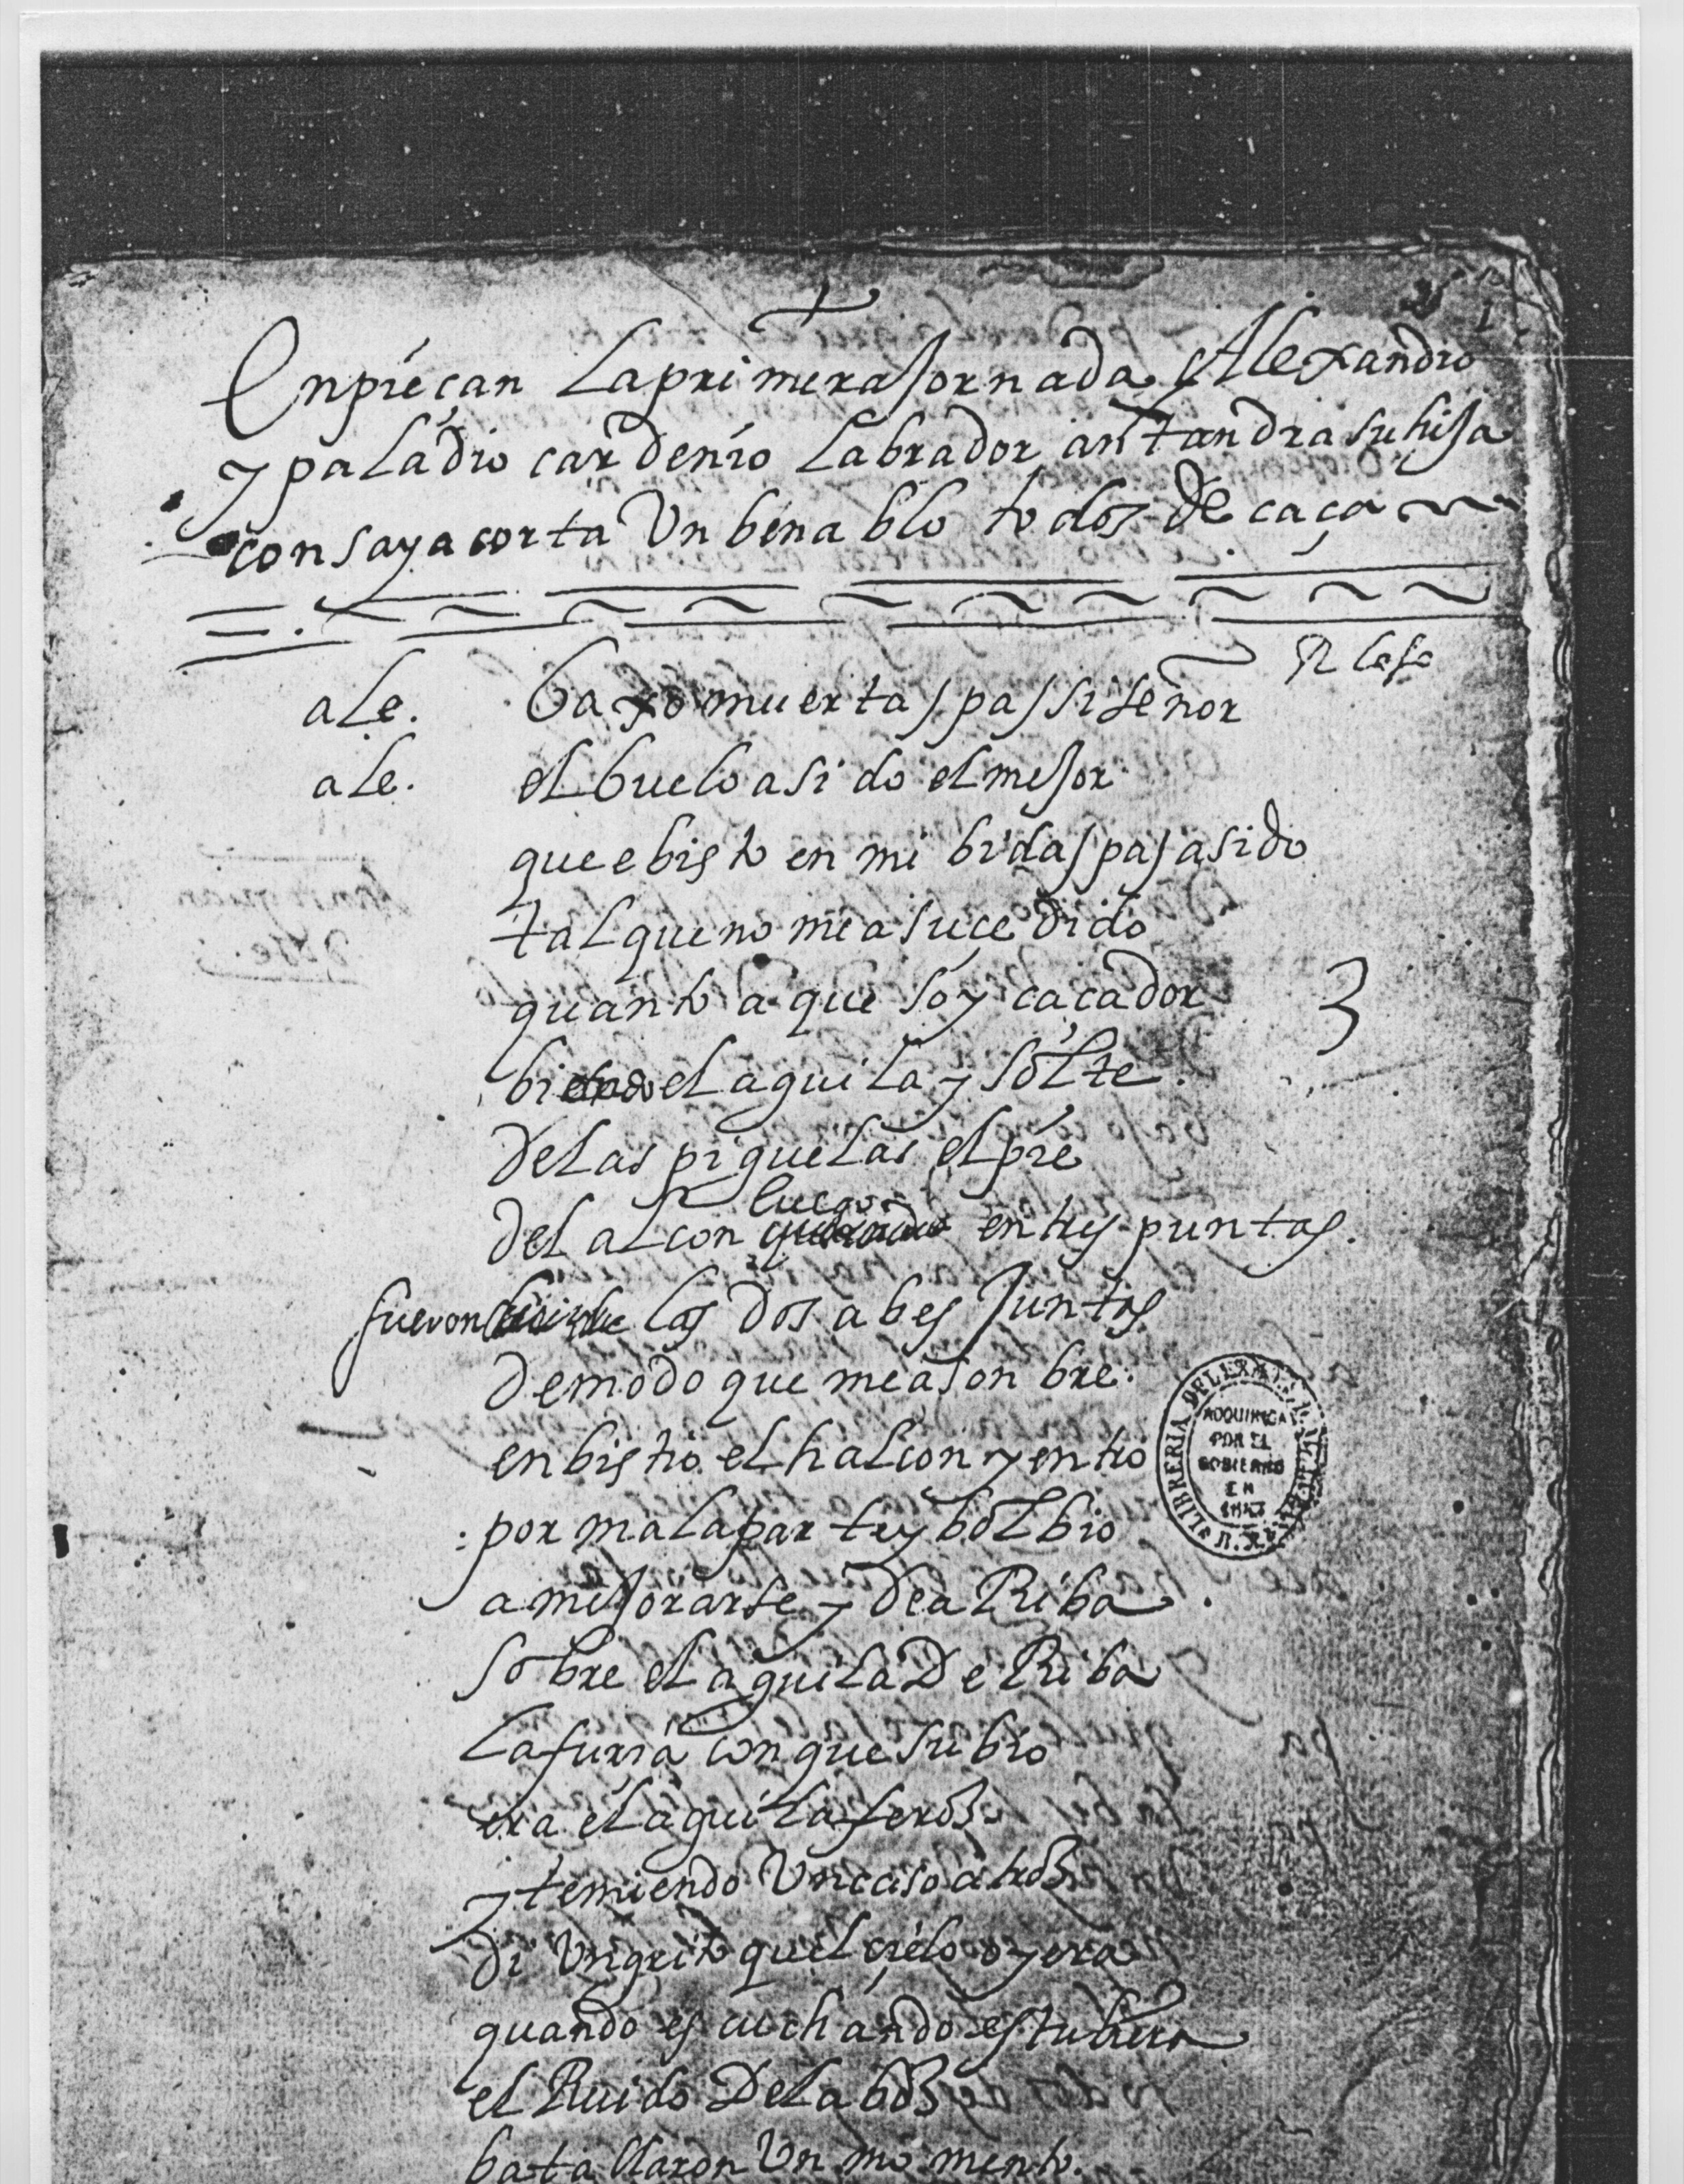 Enpieçan la primera Jornada Alexandro
y paladio cardenio labrador antandra su hija
con saya corta Un benablo todos de caça
ale. baxo muerta / pa / si señor
ale. el buelo a sido el mejor
que e bisto en mi bida / pa / a sido
tal que no me a sucedido
quanto a que soy caçador
3
bi el aguila y solte
de las piguelas el pie
del alcon luego en tres puntas.
fueron las dos abes Juntas
de modo que me asonbre.
enbistio el halcon y entro
por mala parte y bolbio
a mejorarse y de a Riba
sobre el aguila deRiba
la furia con que subio
era el aguila feroz
y temiendo Un caso atroz
di Un grito quel çielo oyera
quando escuchando estubiera
el Ruido De la boz
batallaron Un momento.
LIBRERIA DEL EX
ADQUIRIDA
POR EL
GOBIERNO
EN